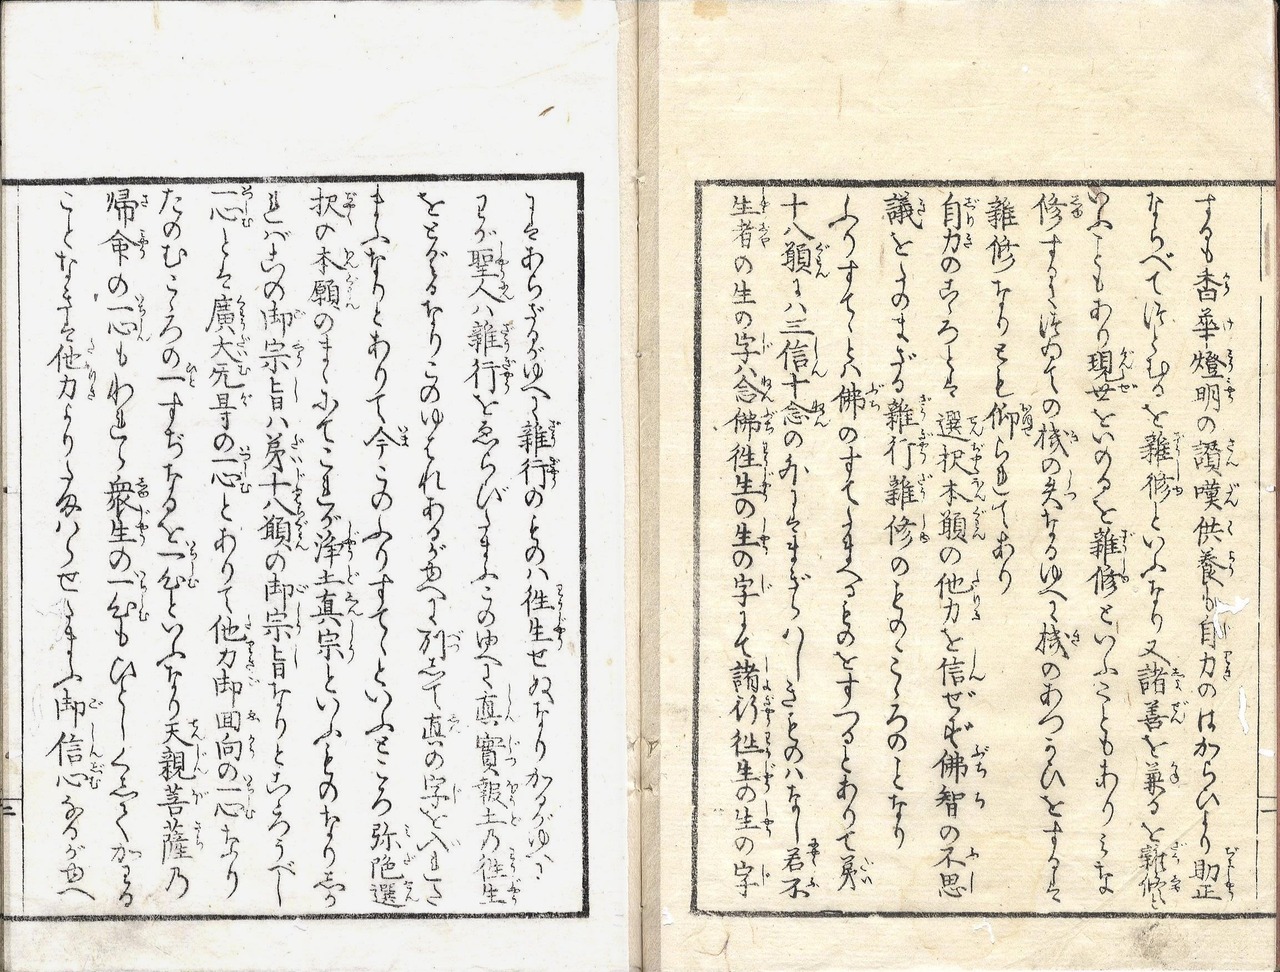 するも香華燈明の讃嘆供養も自力のはからひより助正
ならべてつとむるを雑修といふなり又諸善を兼るを雑修と
いふこともあり現世をいのるを雑修といふこともありみな
修するに付ての機の失なるゆへに機のあつかひをするは
雑修なりとも仰られてあり
自力のこゝろとは選択本願の他力を信ぜず佛智の不思
議をたのまざる雑行雑修のものゝこゝろのことなり
ふりすてゝとは佛のすてたまへるものをすつるとありて第
十八願には三信十念の外にはまぎらはしきものはなし若不
生者の生の字は念佛往生の生の字にて諸行往生の生の字
にはあらざるがゆへに雑行のものは往生せぬなりかるがゆへに
わが聖人は雑行をゑらびたまふこのゆへに真實報土の往生
をとぐるなりこのゆはれあるがゆへに別して真の字を入れさ
まふなりとありて今このふりすてゝといふところ弥陀選
択の本願のまゝにてこれが浄土真宗といふものなりしか
ればこの御宗旨は第十八願の御宗旨なりとこゝろうべし
一心とは廣大无㝵の一心とありて他力御回向の一心なり
たのむこゝろの一すぢなるを一心といふなり天親菩薩の
帰命の一心もわれら衆生の一心もひとしくしてかはる
ことなきは他力よりたまはらせたまふ御信心なるがゆへ